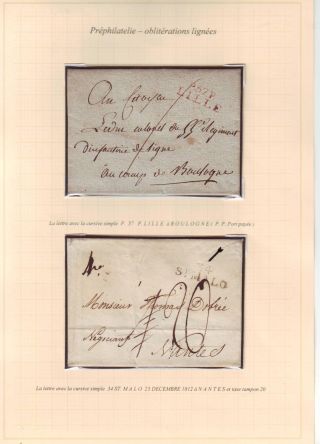 Préphilatelie – oblitérations lignées
P57P
LILLE
Au Citoyen
Ledru colonel du 55e Régiment
D'infanterie de ligne
au camp de Boulogne
La lettre avec la cursive simple P. 57 P. LILLE à BOULOGNE ( P. P. Port payée )
34
ST MALO
Mr
Monsieur Thomas
Négociant
Nantes
La lettre avec la cursive simple 34 ST. MALO 25 DECEMBRE 1812 à NANTES et taxe tampon 20